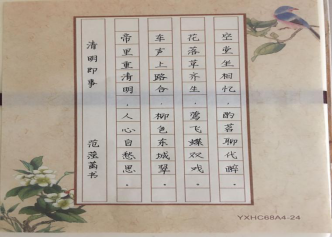 清明即事
帝里重清明,人心自愁思。
车声上路合,柳色东城翠。
花落草齐生,莺飞蝶双戏。
空堂坐相忆,酌茗聊代醉。
YXHC68A4-24